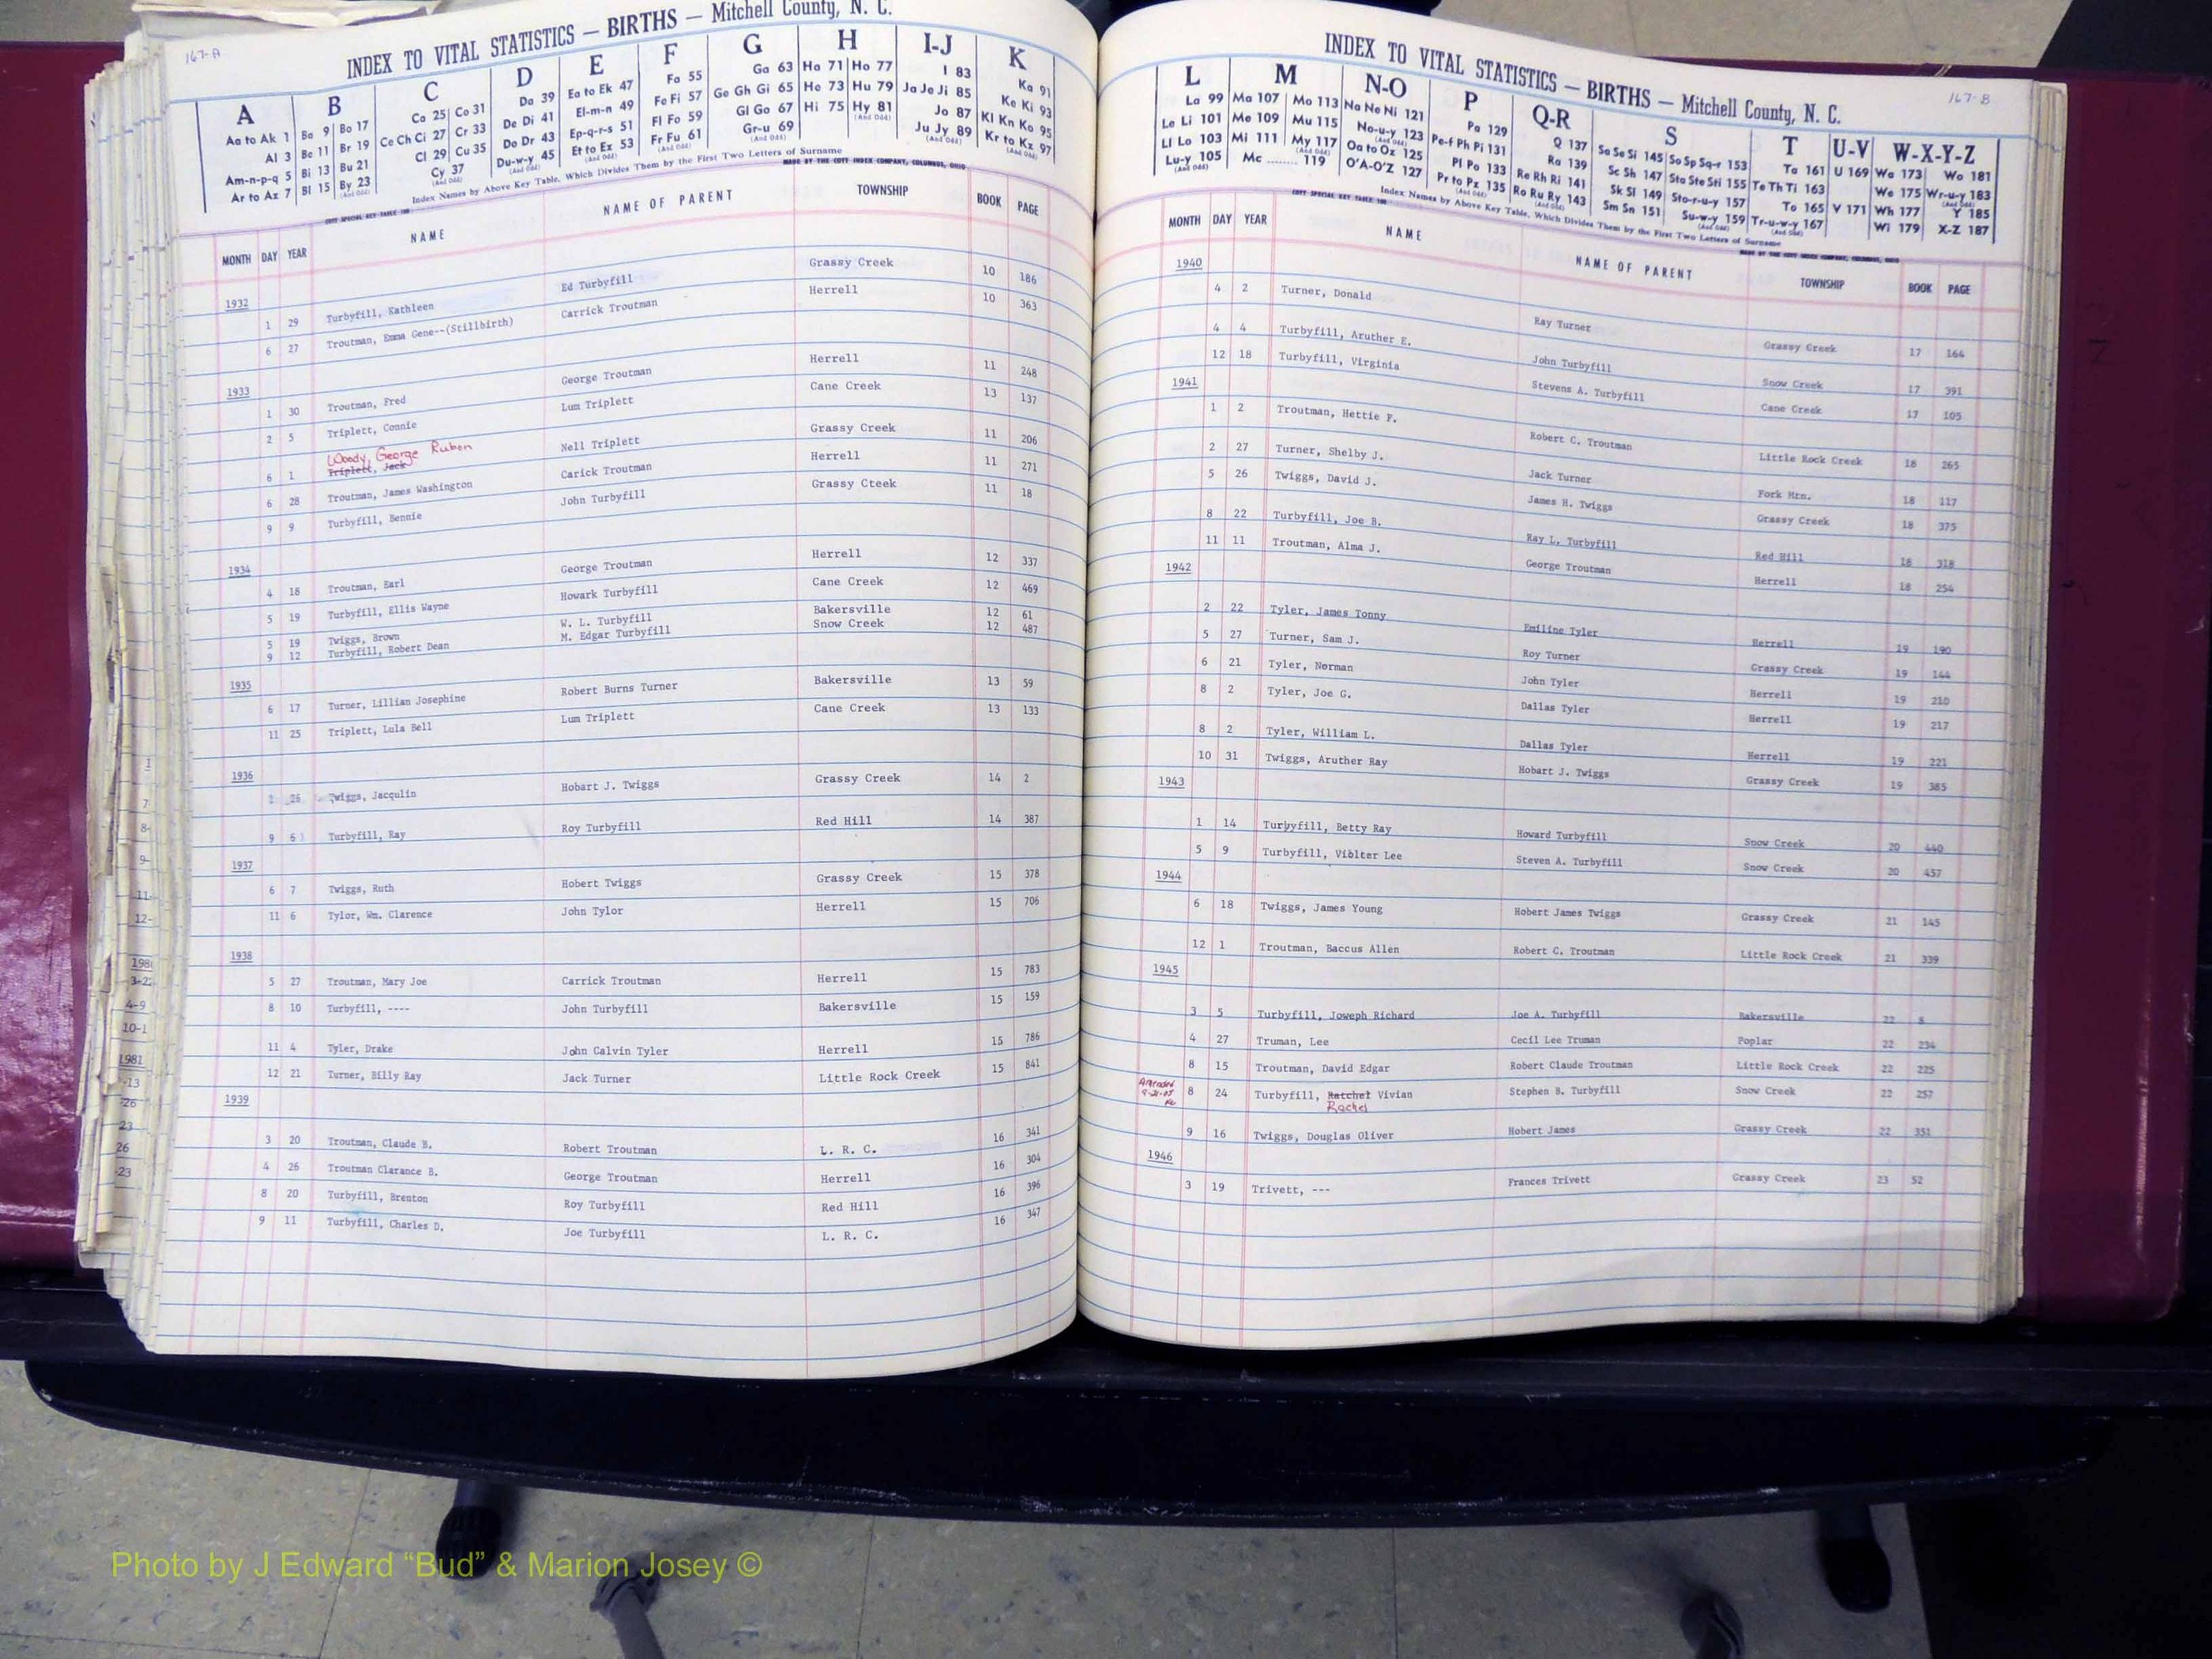 167-A
INDEX TO VITAL STATISTICS — BIRTHS — Mitchell County, N. C.
A B C D E F G H I-J K
Aa to Ak 1 Ba 9 Bo 17 Ca 25 Co 31 Da 39 Ea to Ek 47 Fa 55 Ga 63 Ha 71 Ho 77 I 83 Ka 91
Al 3 Be 11 Br 19 Ce Ch Ci 27 Cr 33 De Di 41 El-m-n 49 Fe Fi 57 Ge Gh Gi 65 He 73 Hu 79 Ja Je Ji 85 Ke Ki 93
Am-n-p-q 5 Bi 13 Bu 21 Cl 29 Cu 35 Do Dr 43 Ep-q-r-s 51 Fl Fo 59 Gl Go 67 Hi 75 Hy 81 Jo 87 Kl Kn Ko 95
Ar to Az 7 Bl 15 By 23 Cy 37 Du-w-y 45 Et to Ez 53 Fr Fu 61 Gr-u 69 Ju Jy 89 Kr to Kz 97
Index Names by Above Key Table, Which Divides Them by the First Two Letters of Surname
MADE BY THE COTT INDEX COMPANY, COLUMBUS, OHIO
MONTH DAY YEAR NAME NAME OF PARENT TOWNSHIP BOOK PAGE
1932
1 29 Turbyfill, Kathleen Ed Turbyfill Grassy Creek 10 186
6 27 Troutman, Emma Gene--(Stillbirth) Carrick Troutman Herrell 10 363
1933
1 30 Troutman, Fred George Troutman Herrell 11 248
2 5 Triplett, Connie Lum Triplett Cane Creek 13 137
Woody, George Ruben
6 1 Triplett, Jack Nell Triplett Grassy Creek 11 206
6 28 Troutman, James Washington Carick Troutman Herrell 11 271
9 9 Turbyfill, Bennie John Turbyfill Grassy Cteek 11 18
1934
4 18 Troutman, Earl George Troutman Herrell 12 337
5 19 Turbyfill, Ellis Wayne Howark Turbyfill Cane Creek 12 469
5 19 Twiggs, Brown W. L. Turbyfill Bakersville 12 61
9 12 Turbyfill, Robert Dean M. Edgar Turbyfill Snow Creek 12 487
1935
6 17 Turner, Lillian Josephine Robert Burns Turner Bakersville 13 59
11 25 Triplett, Lula Bell Lum Triplett Cane Creek 13 133
1936
26 Twiggs, Jacqulin Hobart J. Twiggs Grassy Creek 14 2
9 6 Turbyfill, Ray Roy Turbyfill Red Hill 14 387
1937
6 7 Twiggs, Ruth Hobert Twiggs Grassy Creek 15 378
11 6 Tylor, Wm. Clarence John Tylor Herrell 15 706
1938
5 27 Troutman, Mary Joe Carrick Troutman Herrell 15 783
8 10 Turbyfill, ---- John Turbyfill Bakersville 15 159
11 4 Tyler, Drake John Calvin Tyler Herrell 15 786
12 21 Turner, Billy Ray Jack Turner Little Rock Creek 15 841
1939
3 20 Troutman, Claude B. Robert Troutman L. R. C. 16 341
4 26 Troutman Clarance B. George Troutman Herrell 16 304
8 20 Turbyfill, Brenton Roy Turbyfill Red Hill 16 396
9 11 Turbyfill, Charles D. Joe Turbyfill L. R. C. 16 347
167-B
INDEX TO VITAL STATISTICS — BIRTHS — Mitchell County, N. C.
L M N-O P Q-R S T U-V W-X-Y-Z
La 99 Ma 107 Mo 113 Na Ne Ni 121 Pa 129 Q 137 Sa Se Si 145 So Sp Sq-r 153 Ta 161 U 169 Wa 173 Wo 181
Le Li 101 Me 109 Mu 115 No-u-y 123 Pe-f Ph Pi 131 Ra 139 Sc Sh 147 Sta Ste Sti 155 Te Th Ti 163 We 175 Wr-u-y 183
Ll Lo 103 Mi 111 My 117 Oa to Oz 125 Pl Po 133 Re Rh Ri 141 Sk Sl 149 Sto-r-u-y 157 To 165 V 171 Wh 177 Y 185
Lu-y 105 Mc ........ 119 O'A-O'Z 127 Pr to Pz 135 Ro Ru Ry 143 Sm Sn 151 Su-w-y 159 Tr-u-w-y 167 Wi 179 X-Z 187
Index Names by Above Key Table, Which Divides Them by the First Two Letters of Surname
MONTH DAY YEAR NAME NAME OF PARENT TOWNSHIP BOOK PAGE
1940
4 2 Turner, Donald Ray Turner Grassy Creek 17 164
4 4 Turbyfill, Aruther E. John Turbyfill Snow Creek 17 391
12 18 Turbyfill, Virginia Stevens A. Turbyfill Cane Creek 17 105
1941
1 2 Troutman, Hettie F. Robert C. Troutman Little Rock Creek 18 265
2 27 Turner, Shelby J. Jack Turner Fork Mtn. 18 117
5 26 Twiggs, David J. James H. Twiggs Grassy Creek 18 375
8 22 Turbyfill, Joe B. Ray L. Turbyfill Red Hill 18 318
11 11 Troutman, Alma J. George Troutman Herrell 18 254
1942
2 22 Tyler, James Tonny Emiline Tyler Herrell 19 190
5 27 Turner, Sam J. Roy Turner Grassy Creek 19 144
6 21 Tyler, Norman John Tyler Herrell 19 210
8 2 Tyler, Joe G. Dallas Tyler Herrell 19 217
8 2 Tyler, William L. Dallas Tyler Herrell 19 221
10 31 Twiggs, Aruther Ray Hobart J. Twiggs Grassy Creek 19 385
1943
1 14 Turbyfill, Betty Ray Howard Turbyfill Snow Creek 20 440
5 9 Turbyfill, Viölter Lee Steven A. Turbyfill Snow Creek 20 457
1944
6 18 Twiggs, James Young Hobert James Twiggs Grassy Creek 21 145
12 1 Troutman, Baccus Allen Robert C. Troutman Little Rock Creek 21 339
1945
3 5 Turbyfill, Joweph Richard Joe A. Turbyfill Bakersville 22 8
4 27 Truman, Lee Cecil Lee Truman Poplar 22 234
8 15 Troutman, David Edgar Robert Claude Troutman Little Rock Creek 22 225
Amended
8 24 Turbyfill, Ratchel Vivian Stephen B. Turbyfill Snow Creek 22 257
Rachel
9 16 Twiggs, Douglas Oliver Hobert James Grassy Creek 22 351
1946
3 19 Trivett, --- Frances Trivett Grassy Creek 23 52
Photo by J Edward “Bud” & Marion Josey ©